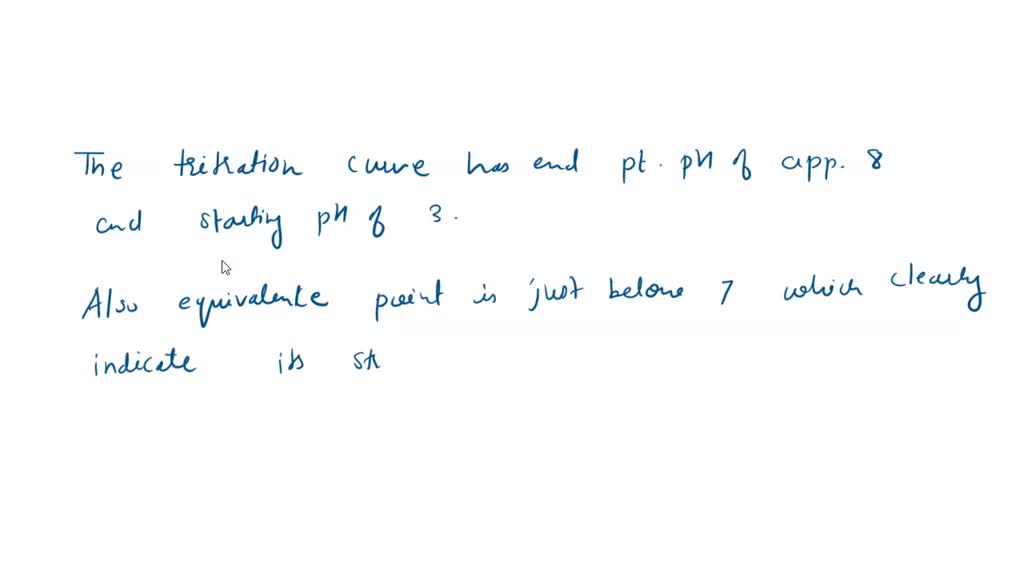 The titration curve has end pt. pH of app. 8
and starting pH of 3.
Also equivalente point is just below 7 which clearly
indicate its st